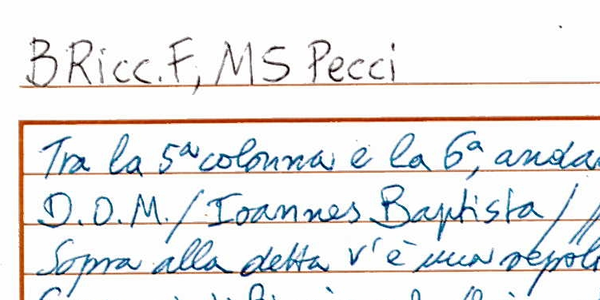 BRicc.F, MS Pecci
Tra la 5ª colonna e la 6ª, anda
D.O.M./Ioannes Baptista/
Sopra alla detta v'è una sepol